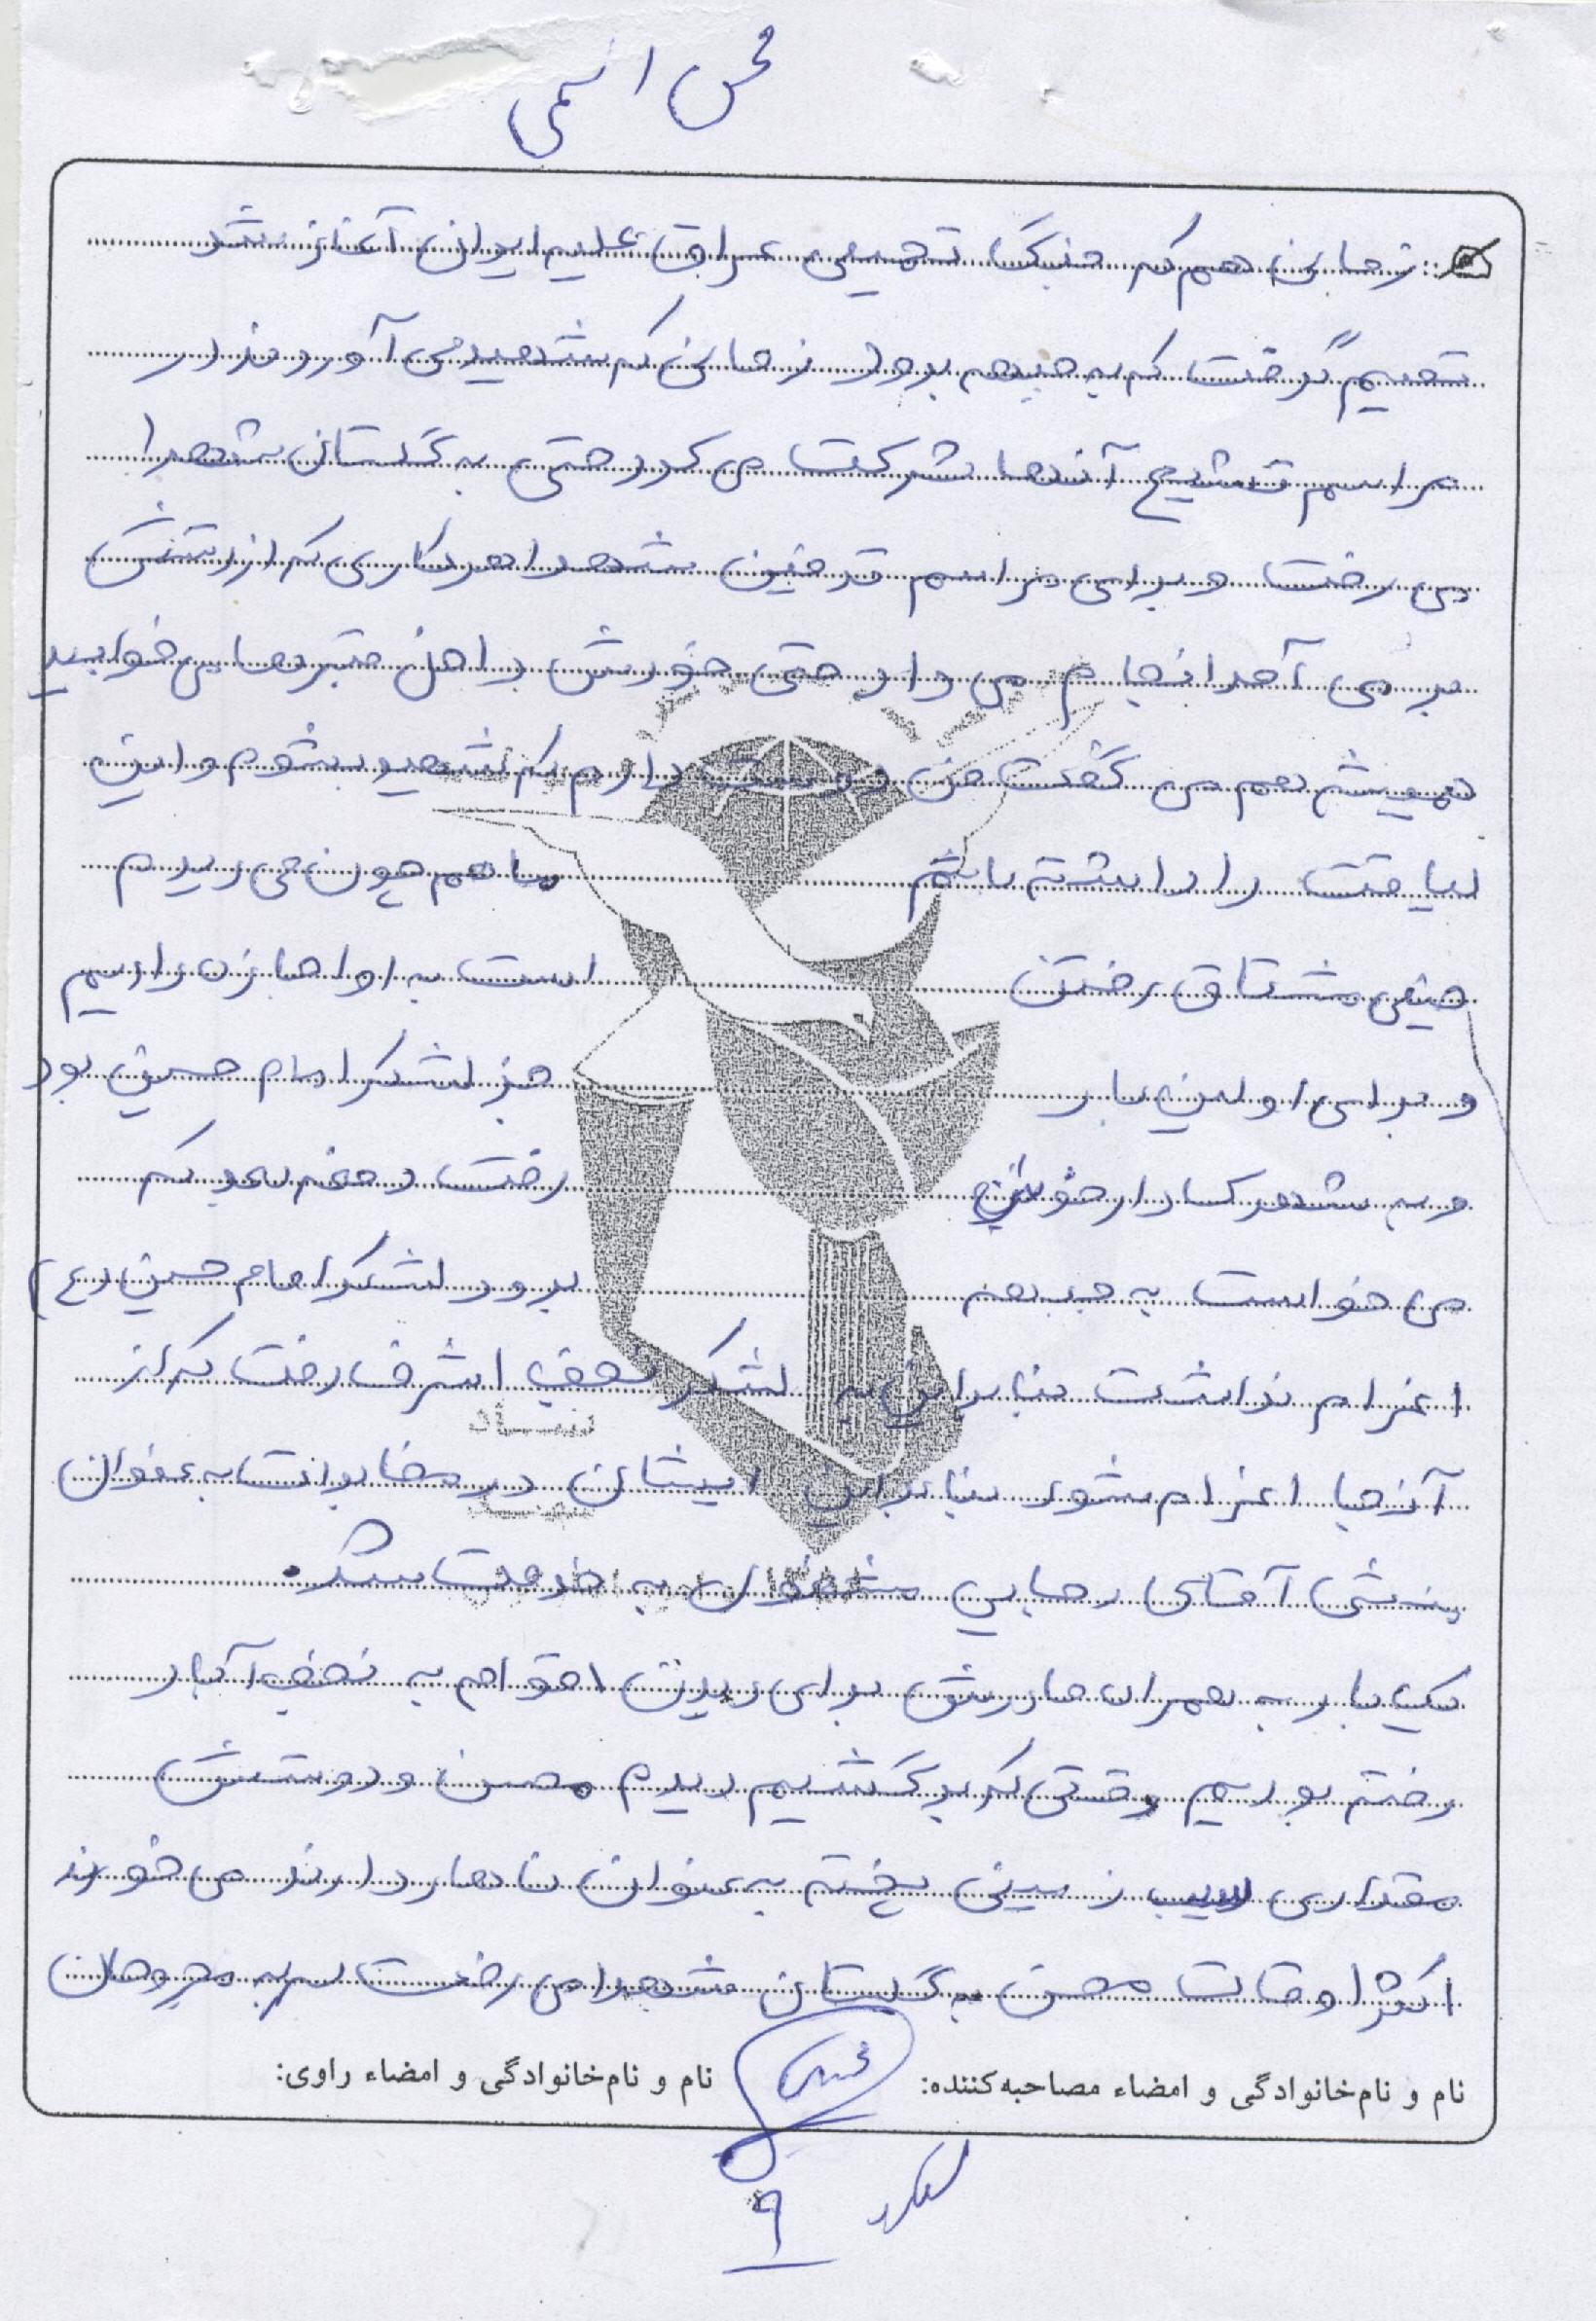 محسن
زمانی هم که جنگ تحمیلی عراق علیه ایران آغاز شد
تصمیم گرفت که به جبهه برود زمانی که شهید می آوردند در
مراسم تشییع آنها شرکت می کرد حتی به گلستان شهدا
می رفت و برای مراسم تدفین شهدا هر کاری که از دستش
بر می آمد انجام می داد حتی خودش داخل قبرها می خوابید
همیشه هم می گفت من دوست دارم که شهید بشوم و این
لیاقت را داشته باشم ما هم چون می دیدم
خیلی مشتاق رفتن است به او اجازه دادیم
و برای اولین بار جز لشکر امام حسین بود
و به شهرکسا دارخوین رفت دفعه بعد که
می خواست به جبهه برود لشکر امام حسین (ع)
اعزام نداشت بنابراین به لشکر نجف اشرف رفت که از
آنجا اعزام شود بنابراین ایشان در مخابرات به عنوان
منشی آقای رجایی مشغول به خدمت شد.
یک بار به همراه مادرش برای دیدن اقوام به نجف آباد
رفته بودیم وقتی که برگشیم دیدم محسن و دوستش
مقداری سیب زمینی پخته به عنوان ناهار دارند می خورند
اکثر اوقات محسن به گلستان شهدا می رفت سر به مجروحان
نام و نام خانوادگی و امضاء مصاحبه کننده: نام و نام خانوادگی و امضاء راوی:
۹